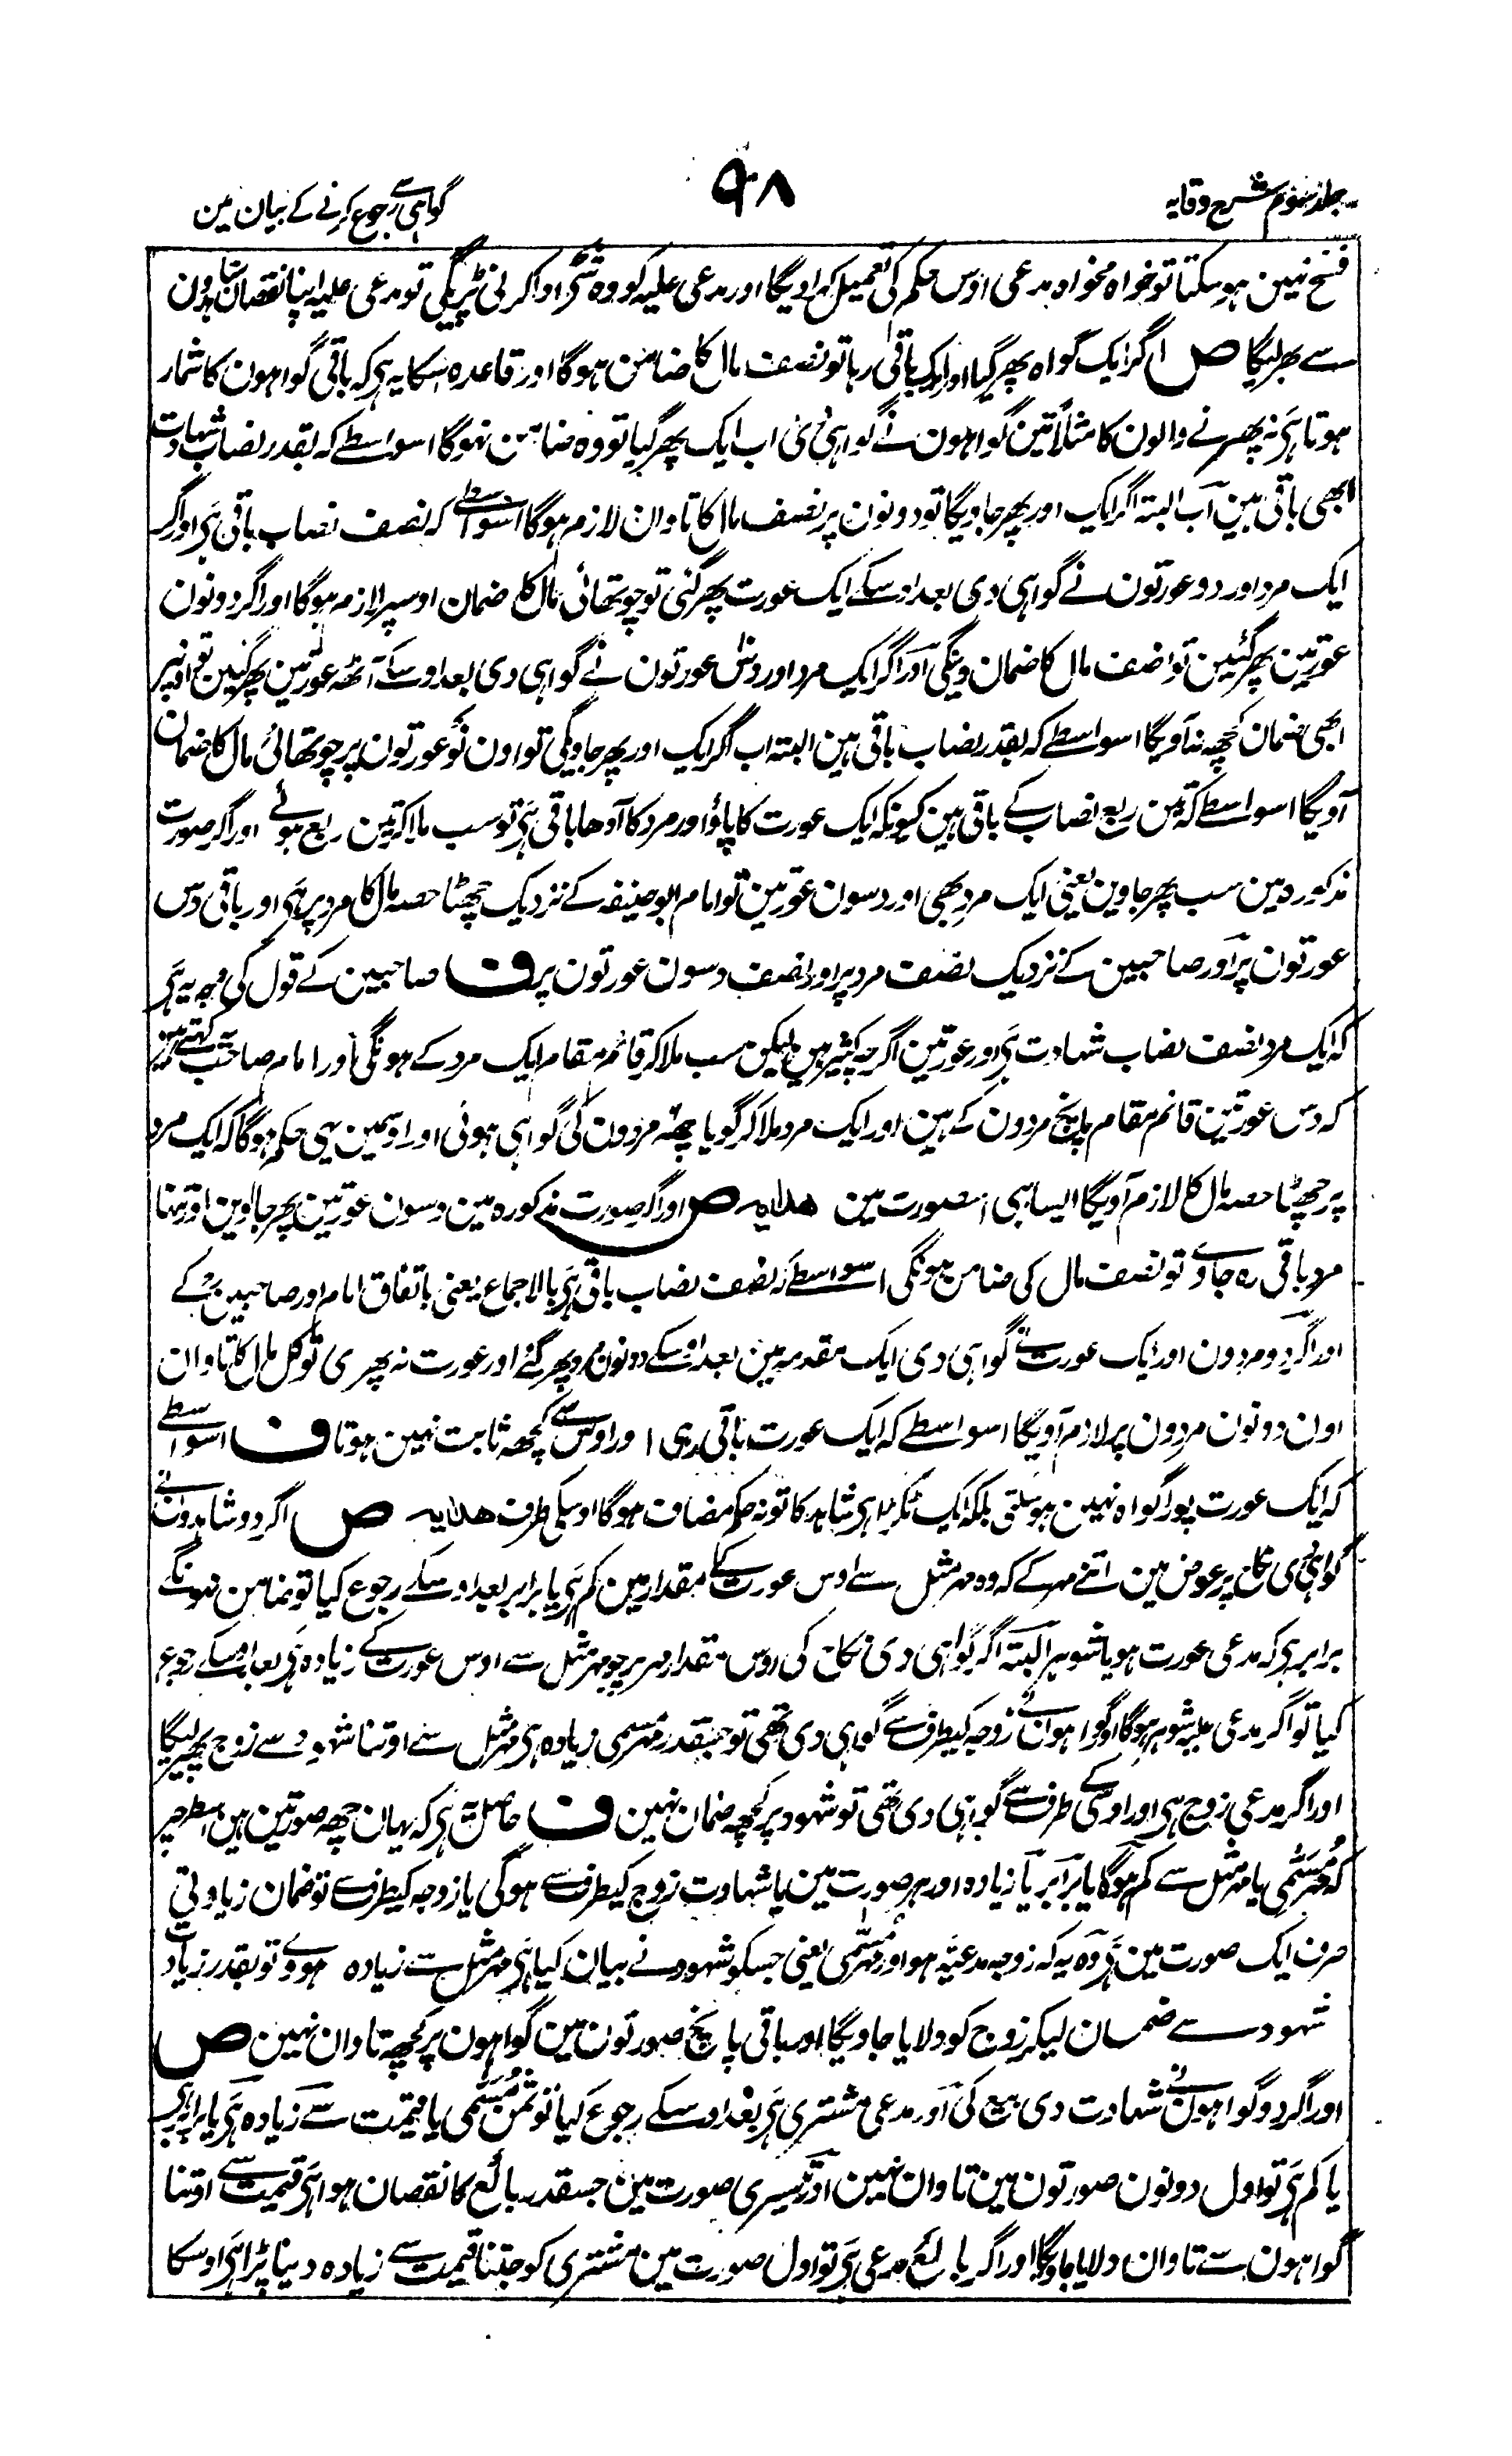 جلد سوم شرح وقایہ
۹۸
گواہی سے رجوع کرنے کے بیان مین
فسخ نہین ہوسکتا تو خواہ مخواہ مدعی اوس حکم کی تعمیل کراویگا اور مدعی علیہ کو وہ شی ادا کرنی پڑیگی تو مدعی علیہ اپنا نقصان شاہدون
سے بھر لیگا ص اگر ایک گواہ پھر گیا اور ایک باقی رہا تو نصف مال کا ضامن ہوگا اور قاعدہ اسکا یہ ہی کہ باقی گواہون کا شمار
ہوتا ہی نہ پھرنے والون کا مثلاً تین گواہون نے گواہی دی اب ایک پھر گیا تو وہ ضامن نہوگا اسواسطے کہ بقدر نصاب شہادت
ابھی باقی ہین اب البتہ اگر ایک اور پھر جاویگا تو دونون پر نصف مال کا تاوان لازم ہوگا اسواسطے کہ نصف نصاب باقی ہی اور اگر
ایک مرد اور دو عورتون نے گواہی دی بعد اوسکے ایک عورت پھر گئی تو چوتھائی مال کا ضمان اوسپر لازم ہوگا اور اگر دونون
عورتین پھر گئین تو نصف مال کا ضمان دینگی اور اگر ایک مرد اور دس عورتون نے گواہی دی بعد اوسکے آٹھ عورتین پھر گئین تو اونپر
ابھی ضمان کچھ نہ آویگا اسواسطے کہ بقدر نصاب باقی ہین البتہ اب اگر ایک اور پھر جاویگی تو اون نو عورتون پر چوتھائی مال کا ضمان
آویگا اسواسطے کہ تین ربع نصاب کے باقی ہین کیونکہ ایک عورت کا پاؤ اور مرد کا آدھا باقی ہی تو سب ملا کر تین ربع ہوئے اور اگر صورت
مذکورہ مین سب پھر جاوین یعنی ایک مرد بھی اور دسون عورتین تو امام ابو حنیفہ کے نزدیک چھٹا حصہ مال کا مرد پر ہی اور باقی دس
عورتون پر اور صاحبین کے نزدیک نصف مرد پر اور نصف دسون عورتون پر ف صاحبین کے قول کی وجہ یہ ہی
کہ ایک مرد نصف نصاب شہادت ہی اور عورتین اگرچہ کثیر ہین لیکن سب ملا کر قائم مقام ایک مرد کے ہونگی اور امام صاحب یہ کہتے ہین
کہ دس عورتین قائم مقام پانچ مردون کے ہین اور ایک مرد ملا کر گویا چھہ مردون کی گواہی ہوئی اور اوسمین یہی حکم ہوگا کہ ایک مرد
پر چھٹا حصہ مال کا لازم آویگا ایسا ہی اسصورت مین ھدایہ ص اور اگر صورت مذکورہ مین دسون عورتین پھر جاوین اور تنہا
مرد باقی رہ جاوے تو نصف مال کی ضامن ہونگی اسواسطے کہ نصف نصاب باقی ہی بالاجماع یعنی باتفاق امام اور صاحبین کے
اور اگر دو مردون اور ایک عورت نے گواہی دی ایک مقدمہ مین بعد اوسکے دونون مرد پھر گئے اور عورت نہ پھری تو کل مال کا تاوان
اون دونون مردون پر لازم آویگا اسواسطے کہ ایک عورت باقی رہی اور اوس سے کچھ ثابت نہین ہوتا ف اسواسطے
کہ ایک عورت پورا گواہ نہین ہوسکتی بلکہ ایک ٹکڑا ہی شاہد کا تو نہ حکم مضاف ہوگا اوسکی طرف ھدایہ ص اگر دو شاہدون نے
گواہی دی نکاح پر عوض مین اتنے مہر کے کہ وہ مہر مثل سے اوس عورت کے مقدار مین کم ہی یا برابر بعد اوسکے رجوع کیا تو ضامن نہونگے
برابر ہی کہ مدعی عورت ہو یا شوہر البتہ اگر گواہی دی نکاح کی اوس مقدار مہر پر جو مہر مثل سے اوس عورت کے زیادہ ہی بعد اوسکے رجوع
کیا تو اگر مدعی علیہ شوہر ہوگا اور گواہون نے زوجہ کیطرف سے گواہی دی تھی تو جسقدر مہر مسمی زیادہ ہی مہر مثل سے اوتنا شہود سے زوج پھیر لیگا
اور اگر مدعی زوج ہی اور اوسکی طرف سے گواہی دی تھی تو شہود پر کچھ ضمان نہین ف حاصل یہ ہی کہ یہان چھہ صورتین ہین اسطرحپر
کہ مہر مسمی یا مہر مثل سے کم ہوگا یا برابر یا زیادہ اور ہر صورت مین یا شہادت زوج کیطرف سے ہوگی یا زوجہ کیطرف سے تو ضمان زیادتی
صرف ایک صورت مین ہی وہ یہ کہ زوجہ مدعیہ ہو اور مہر مسمی یعنی جسکو شہود نے بیان کیا ہی مہر مثل سے زیادہ ہووے تو بقدر زیادت
شہود سے ضمان لیکر زوج کو دلایا جاویگا اور باقی پانچ صورتون مین گواہون پر کچھ تاوان نہین ص
اور اگر دو گواہون نے شہادت دی بیع کی اور مدعی مشتری ہی بعد اوسکے رجوع کیا تو ثمن مسمی یا قیمت سے زیادہ ہی یا برابر ہی
یا کم ہی تو اول دونون صورتون مین تاوان نہین اور تیسری صورت مین جسقدر بائع کا نقصان ہوا ہی قیمت سے اوتنا
گواہون سے تاوان دلایا جاویگا اور اگر بائع مدعی ہی تو اول صورت مین مشتری کو جتنا قیمت سے زیادہ دینا پڑا ہی اوسکا